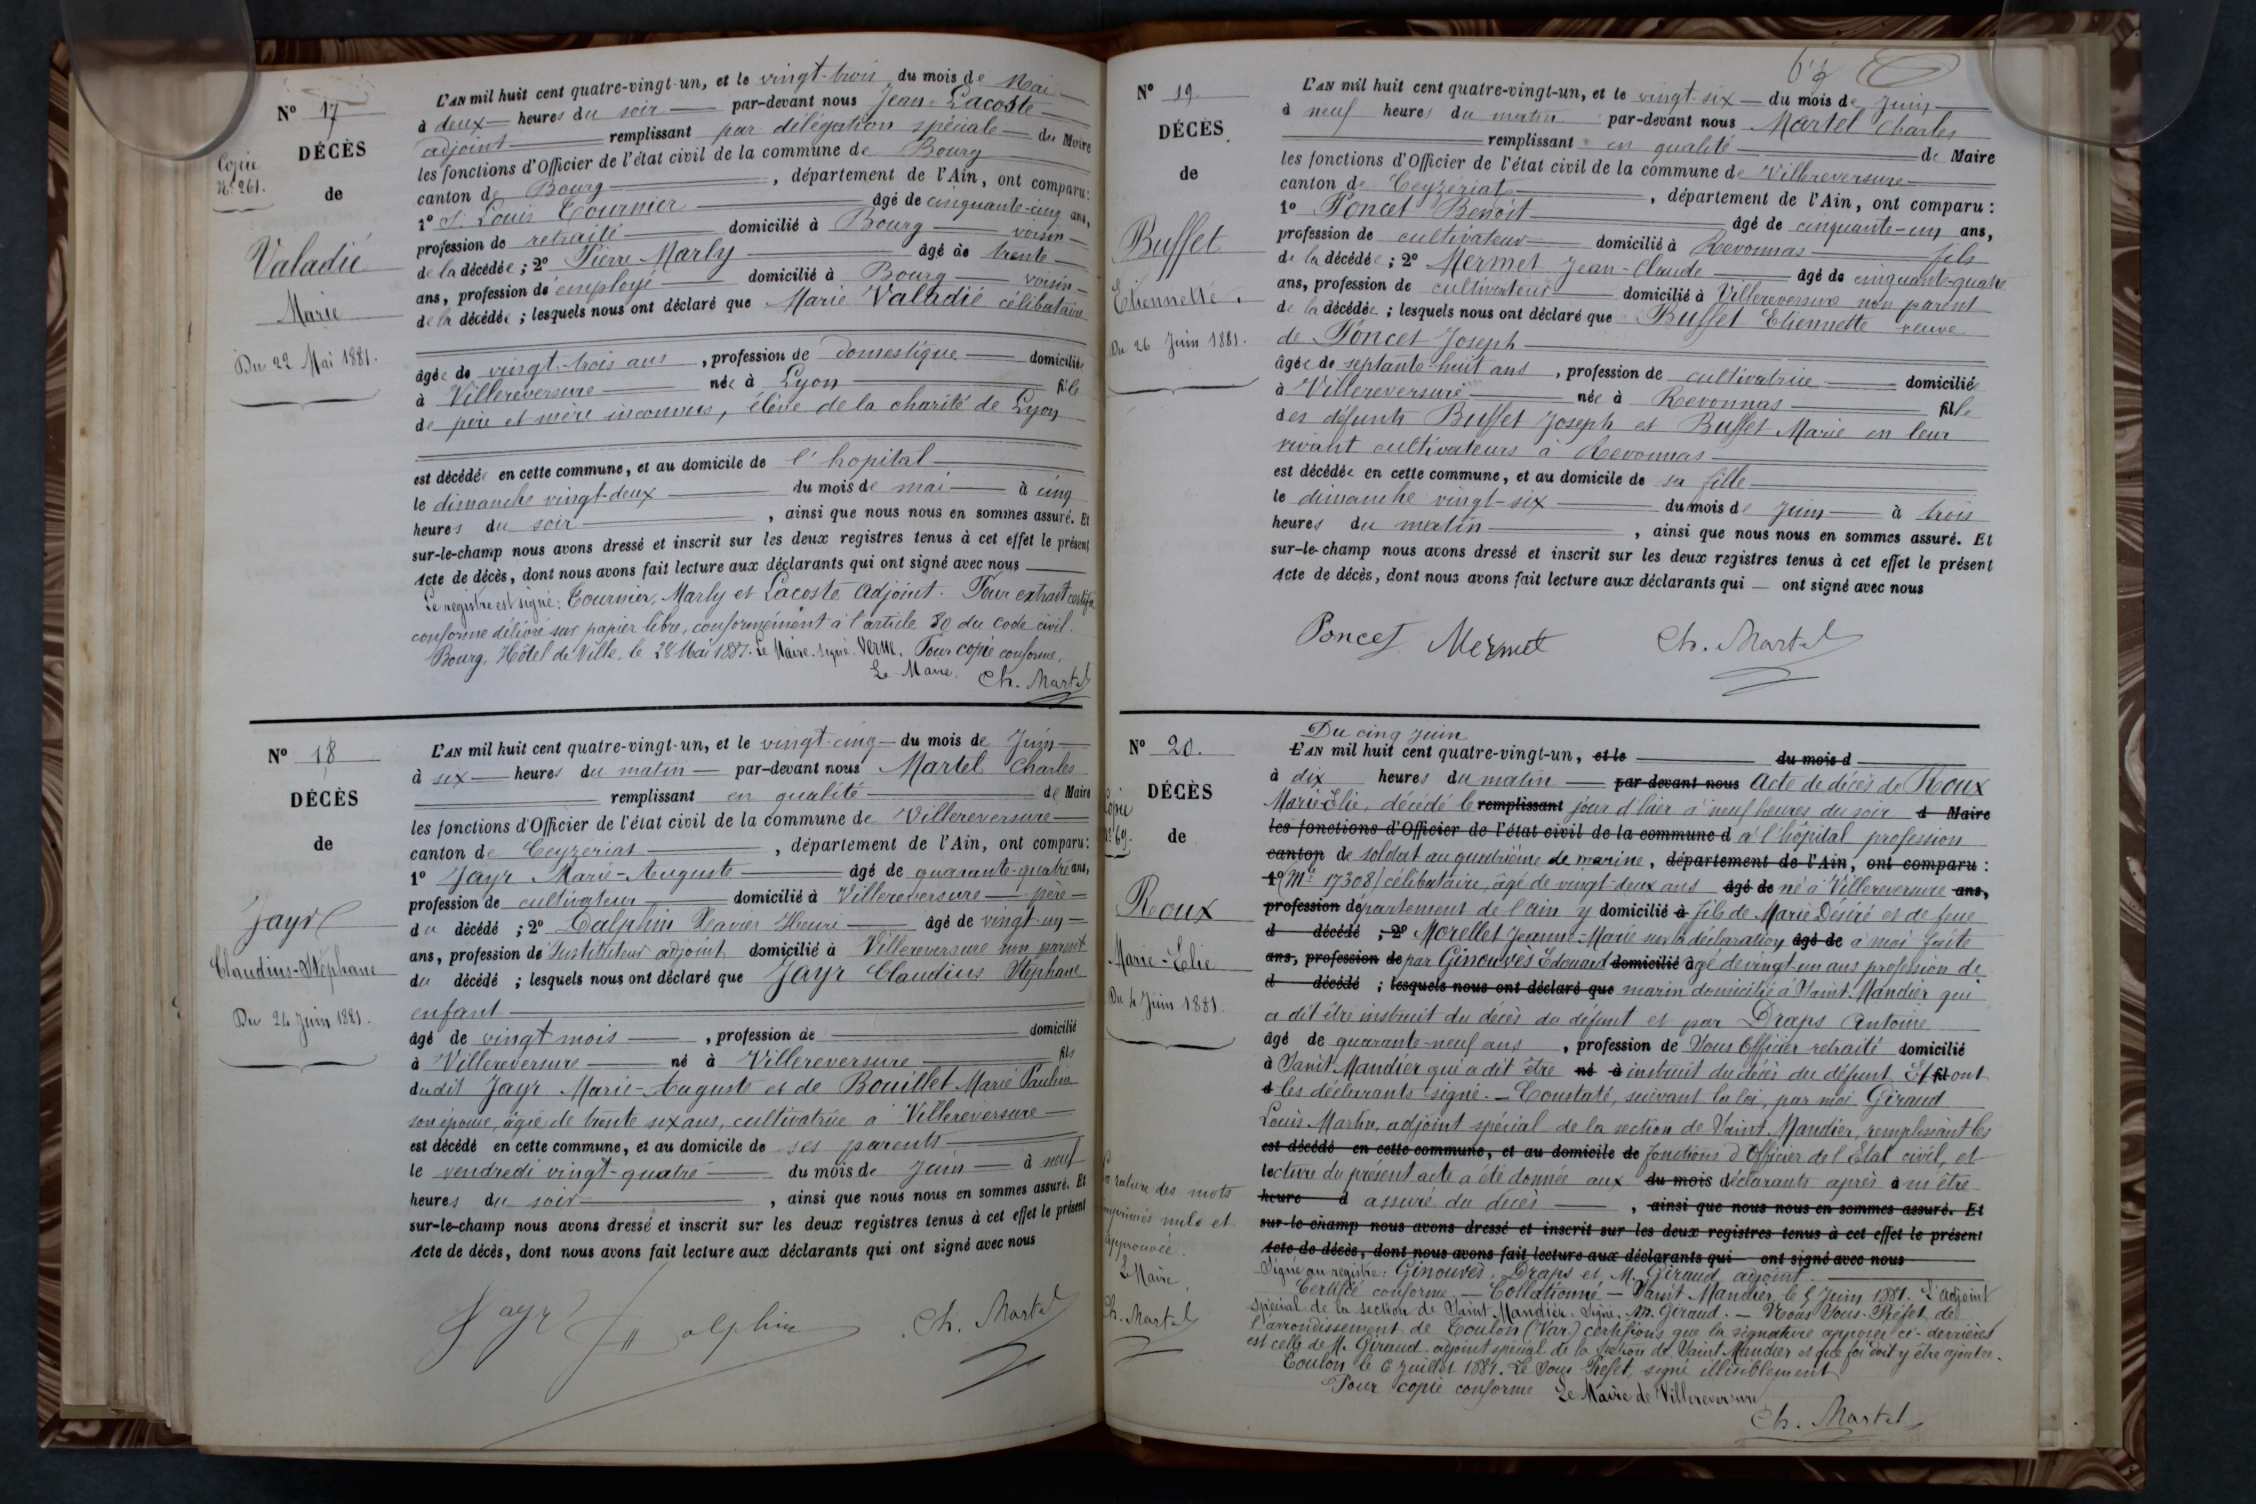 Nº 17
DÉCÈS
Copie
Nº 261.
de
Valadié
Marie
Du 22 Mai 1881.
L'AN mil huit cent quatre-vingt-un, et le vingt-trois du mois de Mai
à deux heures du soir par-devant nous Jean Lacoste
adjoint remplissant par délégation spéciale du Maire
les fonctions d'Officier de l'état civil de la commune de Bourg
canton de Bourg, département de l'Ain, ont comparu:
1º Louis Tournier âgé de cinquante-cinq ans,
profession de retraité domicilié à Bourg voisin
de la décédée; 2º Pierre Marly âgé de trente
ans, profession de employé domicilié à Bourg voisin
de la décédée; lesquels nous ont déclaré que Marie Valadié célibataire
âgée de vingt-trois ans, profession de domestique domiciliée
à Villereversure née à Lyon fille
de père et mère inconnus, élève de la charité de Lyon
est décédée en cette commune, et au domicile de l'hopital
le dimanche vingt-deux du mois de mai à cinq
heures du soir, ainsi que nous nous en sommes assuré. Et
sur-le-champ nous avons dressé et inscrit sur les deux registres tenus à cet effet le présent
Acte de décès, dont nous avons fait lecture aux déclarants qui ont signé avec nous
Le registre est signé: Tournier, Marly et Lacoste Adjoint. Pour extrait certifié
conforme délivré sur papier libre, conformément à l'article 80 du code civil.
Bourg, Hôtel de Ville, le 28 Mai 1881. Le Maire. signé. Verne. Pour copie conforme,
Le Maire. Ch. Martel
Nº 18
DÉCÈS
de
Jayr
Claudius-Stéphane
Du 24 Juin 1881.
L'AN mil huit cent quatre-vingt-un, et le vingt-cinq du mois de Juin
à six heures du matin par-devant nous Martel Charles
remplissant en qualité de Maire
les fonctions d'Officier de l'état civil de la commune de Villereversure
canton de Ceyzeriat, département de l'Ain, ont comparu:
1º Jayr Marie-Auguste âgé de quarante-quatre ans,
profession de cultivateur domicilié à Villereversure père
du décédé; 2º Dalphin Xavier Henri âgé de vingt-un
ans, profession de Instituteur adjoint domicilié à Villereversure non parent
du décédé; lesquels nous ont déclaré que Jayr Claudius Stéphane
enfant
âgé de vingt mois, profession de domicilié
à Villereversure né à Villereversure fils
dudit Jayr Marie-Auguste et de Bouillet Marie Pauline
son épouse, âgée de trente six ans, cultivatrice à Villereversure
est décédé en cette commune, et au domicile de ses parents
le vendredi vingt-quatre du mois de Juin à neuf
heures du soir, ainsi que nous nous en sommes assuré. Et
sur-le-champ nous avons dressé et inscrit sur les deux registres tenus à cet effet le présent
Acte de décès, dont nous avons fait lecture aux déclarants qui ont signé avec nous
Jayr Dalphin Ch. Martel
Nº 19.
DÉCÈS
de
Buffet
Etiennette.
Du 26 Juin 1881.
L'AN mil huit cent quatre-vingt-un, et le vingt-six du mois de Juin
à neuf heures du matin par-devant nous Martel Charles
remplissant en qualité de Maire
les fonctions d'Officier de l'état civil de la commune de Villereversure
canton de Ceyzériat, département de l'Ain, ont comparu:
1º Poncet Benoit âgé de cinquante-un ans,
profession de cultivateur domicilié à Revonnas fils
de la décédée; 2º Mermet Jean-Claude âgé de cinquante-quatre
ans, profession de cultivateur domicilié à Villereversure non parent
de la décédée; lesquels nous ont déclaré que Buffet Etiennette veuve
de Poncet Joseph
âgée de septante-huit ans, profession de cultivatrice domicilié
à Villereversure née à Revonnas fille
des défunts Buffet Joseph et Buffet Marie en leur
vivant cultivateurs à Revonnas
est décédée en cette commune, et au domicile de sa fille
le dimanche vingt-six du mois de Juin à trois
heures du matin, ainsi que nous nous en sommes assuré. Et
sur-le-champ nous avons dressé et inscrit sur les deux registres tenus à cet effet le présent
Acte de décès, dont nous avons fait lecture aux déclarants qui ont signé avec nous
Poncet Mermet Ch. Martel
Nº 20.
Copie
Nº 69.
DÉCÈS
de
Roux
Marie-Elie
Du 4 Juin 1881.
La rature des mots
imprimés nuls et
approuvée.
Le Maire
Ch. Martel
Du cinq juin
L'AN mil huit cent quatre-vingt-un, et le du mois d
à dix heures du matin par-devant nous Acte de décès de Roux
Marie-Elie, décédé le remplissant jour d'hier à neuf heures du soir d Maire
les fonctions d'Officier de l'état civil de la commune d à l'hôpital profession
canton de soldat au quatrième de marine, département de l'Ain, ont comparu:
1º (Mle 17308) célibataire, âgé de vingt-deux ans âgé de né à Villereversure ans,
profession département de l'Ain y domicilié à fils de Marie Désiré et de feue
d décédé; 2º Morellet Jeanne-Marie sur la déclaration âgé de à moi faite
ans, profession de par Ginouvès Edouard domicilié âgé de vingt-un ans profession de
d décédé; lesquels nous ont déclaré que marin domicilié à Saint-Mandier qui
a dit être instruit du décès du défunt et par Draps Antoine
âgé de quarante-neuf ans, profession de Sous Officier retraité domicilié
à Saint Mandier qui a dit être né à instruit du décès du défunt. Et fil ont
d les déclarants signé. - Constaté, suivant la loi, par moi Giraud
Louis Martin, adjoint spécial de la section de Saint Mandier, remplissant les
est décédé en cette commune, et au domicile de fonctions d'Officier de l'Etat civil, et
lecture du présent acte a été donnée aux du mois déclarants après à m'être
heure d assuré du décès, ainsi que nous nous en sommes assuré. Et
sur-le-champ nous avons dressé et inscrit sur les deux registres tenus à cet effet le présent
Acte de décès, dont nous avons fait lecture aux déclarants qui ont signé avec nous
Signé au registre: Ginouvès, Draps et M. Giraud adjoint.
Certifié conforme. - Collationné - Saint Mandier, le 5 Juin 1881. L'adjoint
spécial de la section de Saint Mandier. Signé. M. Giraud. - Nous Sous-Préfet de
l'arrondissement de Toulon (Var) certifions que la signature apposée ci-derrière
est celle de M. Giraud adjoint spécial de la section de Saint Mandier et que foi doit y être ajoutée.
Toulon le 6 Juillet 1881. Le Sous Préfet, signé illisiblement
Pour copie conforme Le Maire de Villereversure
Ch. Martel